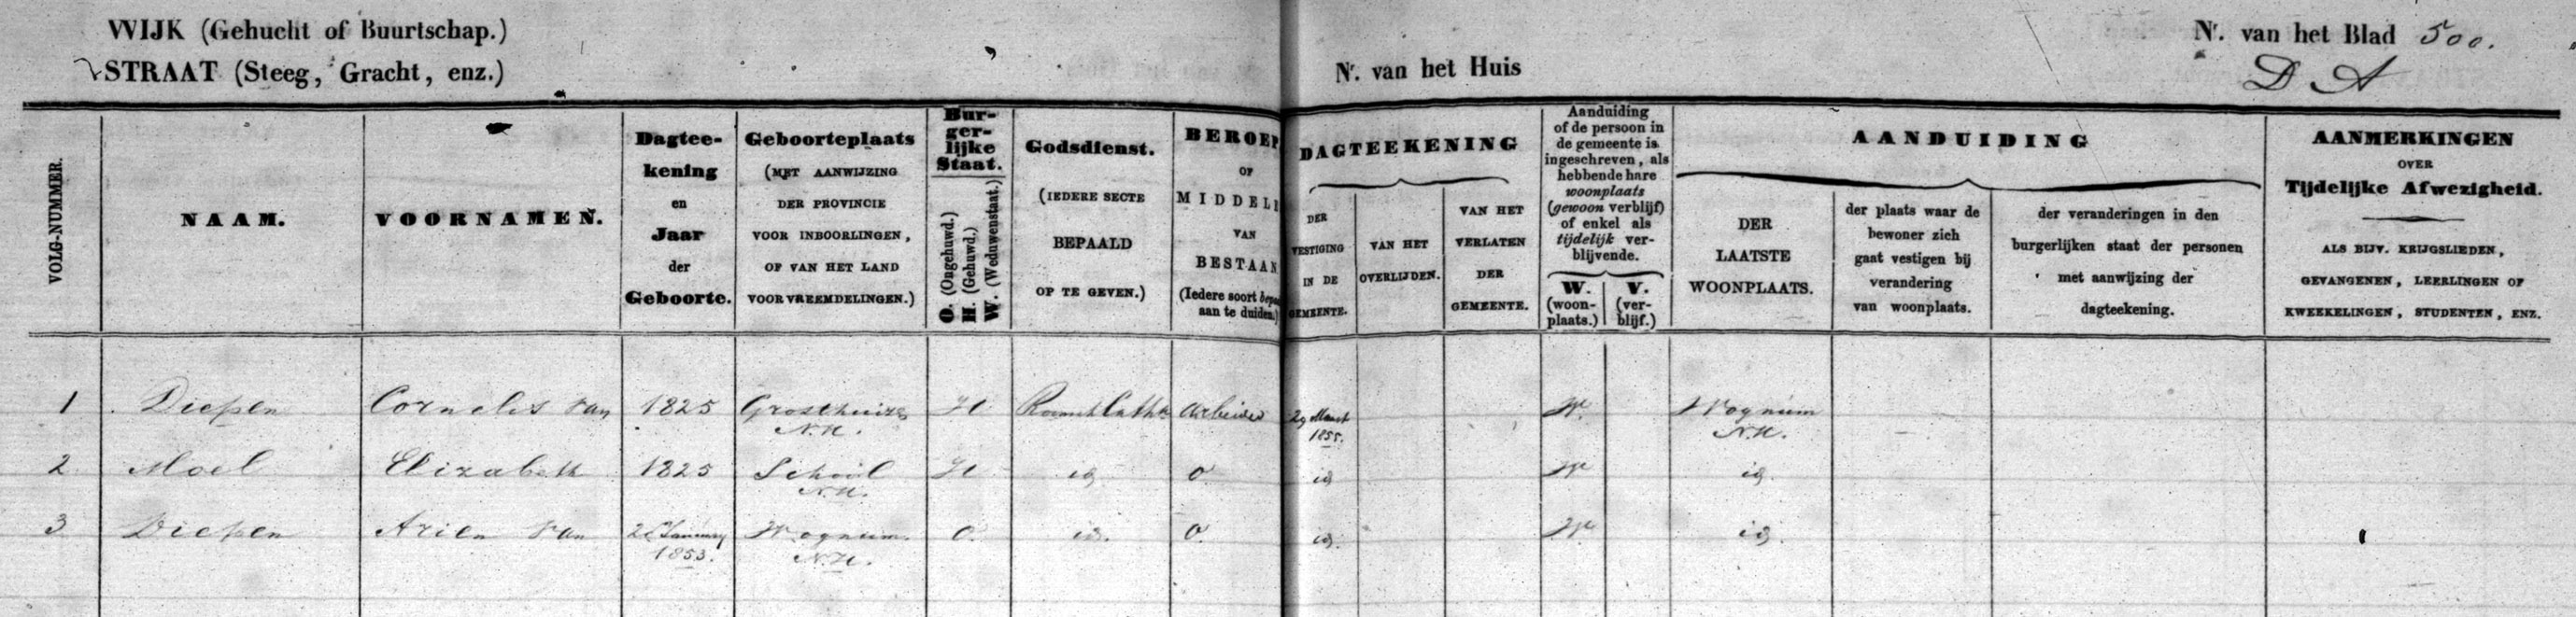 WIJK (Gehucht of Buurtschap.)
STRAAT (Steeg, Gracht, enz.)
Nr. van het Huis
Nr. van het Blad 500.
D A
VOLG-NUMMER.
NAAM.
VOORNAMEN.
Dagtee-
kening
en
Jaar
der
Geboorte.
Geboorteplaats
(MET AANWIJZING
DER PROVINCIE
VOOR INBOORLINGEN,
OF VAN HET LAND
VOOR VREEMDELINGEN.)
Bur-
ger-
lijke
Staat.
O. (Ongehuwd.)
H. (Gehuwd.)
W. (Weduwenstaat.)
Godsdienst.
(IEDERE SECTE
BEPAALD
OP TE GEVEN.)
BEROEP
OF
MIDDEL
VAN
BESTAAN
(Iedere soort
aan te duiden.)
DAGTEEKENING
DER
VESTIGING
IN DE
GEMEENTE.
VAN HET
OVERLIJDEN.
VAN HET
VERLATEN
DER
GEMEENTE.
Aanduiding
of de persoon in
de gemeente is
ingeschreven, als
hebbende hare
woonplaats
(gewoon verblijf)
of enkel als
tijdelijk ver-
blijvende.
W.
(woon-
plaats.)
V.
(ver-
blijf.)
AANDUIDING
DER
LAATSTE
WOONPLAATS.
der plaats waar de
bewoner zich
gaat vestigen bij
verandering
van woonplaats.
der veranderingen in den
burgerlijken staat der personen
met aanwijzing der
dagteekening.
AANMERKINGEN
OVER
Tijdelijke Afwezigheid.
ALS BIJV. KRIJGSLIEDEN,
GEVANGENEN, LEERLINGEN OF
KWEEKELINGEN, STUDENTEN, ENZ.
1 Diepen Cornelis van 1825 Grosthuizen N.H. H Roomsch Cathk Arbeider 29 Maart 1855. W. Wognum N.H.
2 Moel Elizabeth 1825 School N.H. H id o id W id.
3 Diepen Arien van January 1853. Wognum N.H. O. id. o. id. W. id.